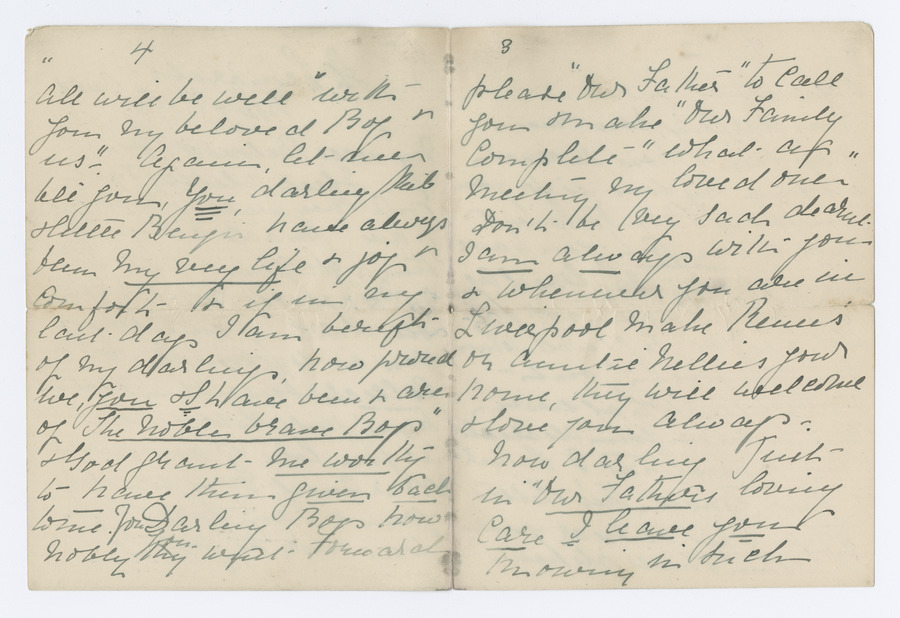 4
"
all will be well" with
you my beloved Boy &
us". Again, let me
tell you, You, darling
& little Benjn have always
been my very life & joy &
comfort & if in my
last days I am bereft
of my darlings, how proud
we, you & I have been & are
of "The Noble brave Boys"
& God grant me worthy
to have them given back
to me. Darling Boys how
nobly you went forward
3
please "Our Father" to call
you & make "Our Family
Complete" what a
meeting my loved one"
Don't be sad dearest
I am always with you
& whenever you are in
Liverpool make
or Auntie Nellies your
home, they will welcome
& love you always.
Now darling Just
in "Our Fathers loving
Care I leave you
knowing in such